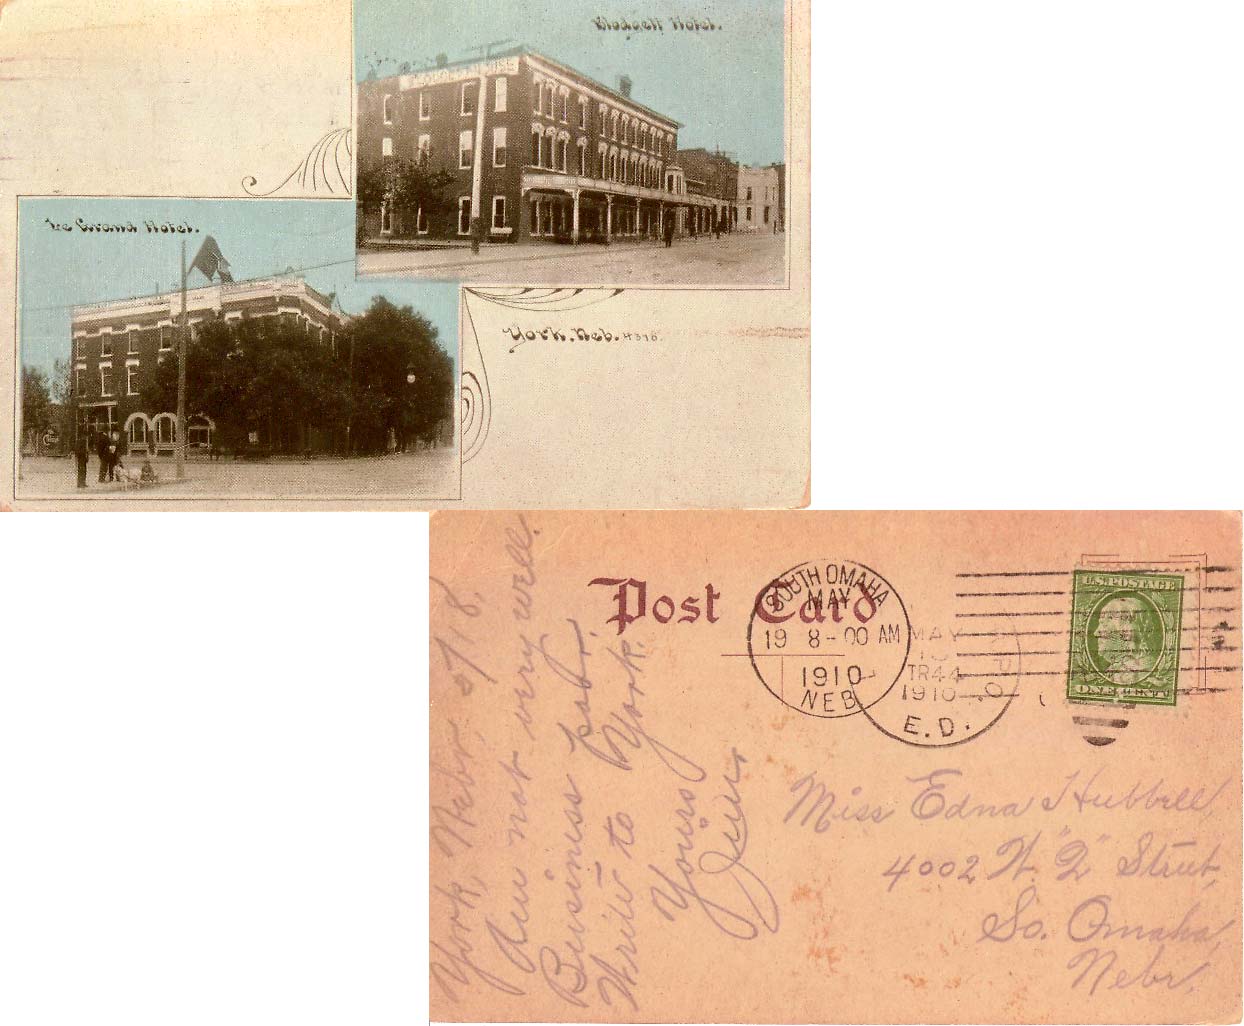 Blodgett Hotel.
Le Grand Hotel.
York, Neb. 4376.
Post Card
SOUTH OMAHA
MAY
19 8-00 AM
1910
NEB
MAY
TR44
1910
R.P.O.
E.D.
U.S. POSTAGE
ONE CENT
York, Nebr. 5/18,
Am not very well.
Business poor.
Write to York.
Yours
Jim
Miss Edna Hubbell,
4002 W. "Q" Street,
So. Omaha,
Nebr.